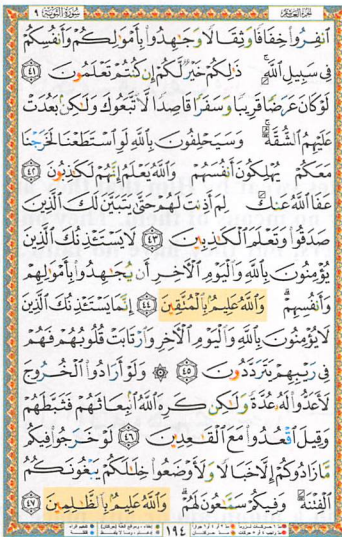 سورة التوبة ٩
الجزء العاشر
ٱنفِرُوا۟ خِفَافًا وَثِقَالًا وَجَٰهِدُوا۟ بِأَمْوَٰلِكُمْ وَأَنفُسِكُمْ
فِى سَبِيلِ ٱللَّهِ ۚ ذَٰلِكُمْ خَيْرٌ لَّكُمْ إِن كُنتُمْ تَعْلَمُونَ ٤١
لَوْ كَانَ عَرَضًا قَرِيبًا وَسَفَرًا قَاصِدًا لَّٱتَّبَعُوكَ وَلَٰكِنۢ بَعُدَتْ
عَلَيْهِمُ ٱلشُّقَّةُ ۚ وَسَيَحْلِفُونَ بِٱللَّهِ لَوِ ٱسْتَطَعْنَا لَخَرَجْنَا
مَعَكُمْ يُهْلِكُونَ أَنفُسَهُمْ وَٱللَّهُ يَعْلَمُ إِنَّهُمْ لَكَٰذِبُونَ ٤٢
عَفَا ٱللَّهُ عَنكَ لِمَ أَذِنتَ لَهُمْ حَتَّىٰ يَتَبَيَّنَ لَكَ ٱلَّذِينَ
صَدَقُوا۟ وَتَعْلَمَ ٱلْكَٰذِبِينَ ٤٣ لَا يَسْتَـْٔذِنُكَ ٱلَّذِينَ
يُؤْمِنُونَ بِٱللَّهِ وَٱلْيَوْمِ ٱلْـَٔاخِرِ أَن يُجَٰهِدُوا۟ بِأَمْوَٰلِهِمْ
وَأَنفُسِهِمْ ۗ وَٱللَّهُ عَلِيمٌۢ بِٱلْمُتَّقِينَ ٤٤ إِنَّمَا يَسْتَـْٔذِنُكَ ٱلَّذِينَ
لَا يُؤْمِنُونَ بِٱللَّهِ وَٱلْيَوْمِ ٱلْـَٔاخِرِ وَٱرْتَابَتْ قُلُوبُهُمْ فَهُمْ
فِى رَيْبِهِمْ يَتَرَدَّدُونَ ٤٥ ۞ وَلَوْ أَرَادُوا۟ ٱلْخُرُوجَ
لَأَعَدُّوا۟ لَهُۥ عُدَّةً وَلَٰكِن كَرِهَ ٱللَّهُ ٱنۢبِعَاثَهُمْ فَثَبَّطَهُمْ
وَقِيلَ ٱقْعُدُوا۟ مَعَ ٱلْقَٰعِدِينَ ٤٦ لَوْ خَرَجُوا۟ فِيكُم
مَّا زَادُوكُمْ إِلَّا خَبَالًا وَلَأَوْضَعُوا۟ خِلَٰلَكُمْ يَبْغُونَكُمُ
ٱلْفِتْنَةَ وَفِيكُمْ سَمَّٰعُونَ لَهُمْ ۗ وَٱللَّهُ عَلِيمٌۢ بِٱلظَّٰلِمِينَ ٤٧
١٩٤